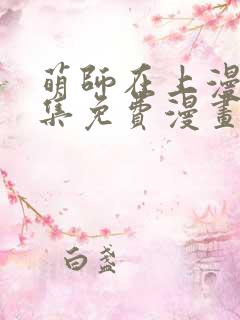 萌師在上漫
集免費漫畫
白盞